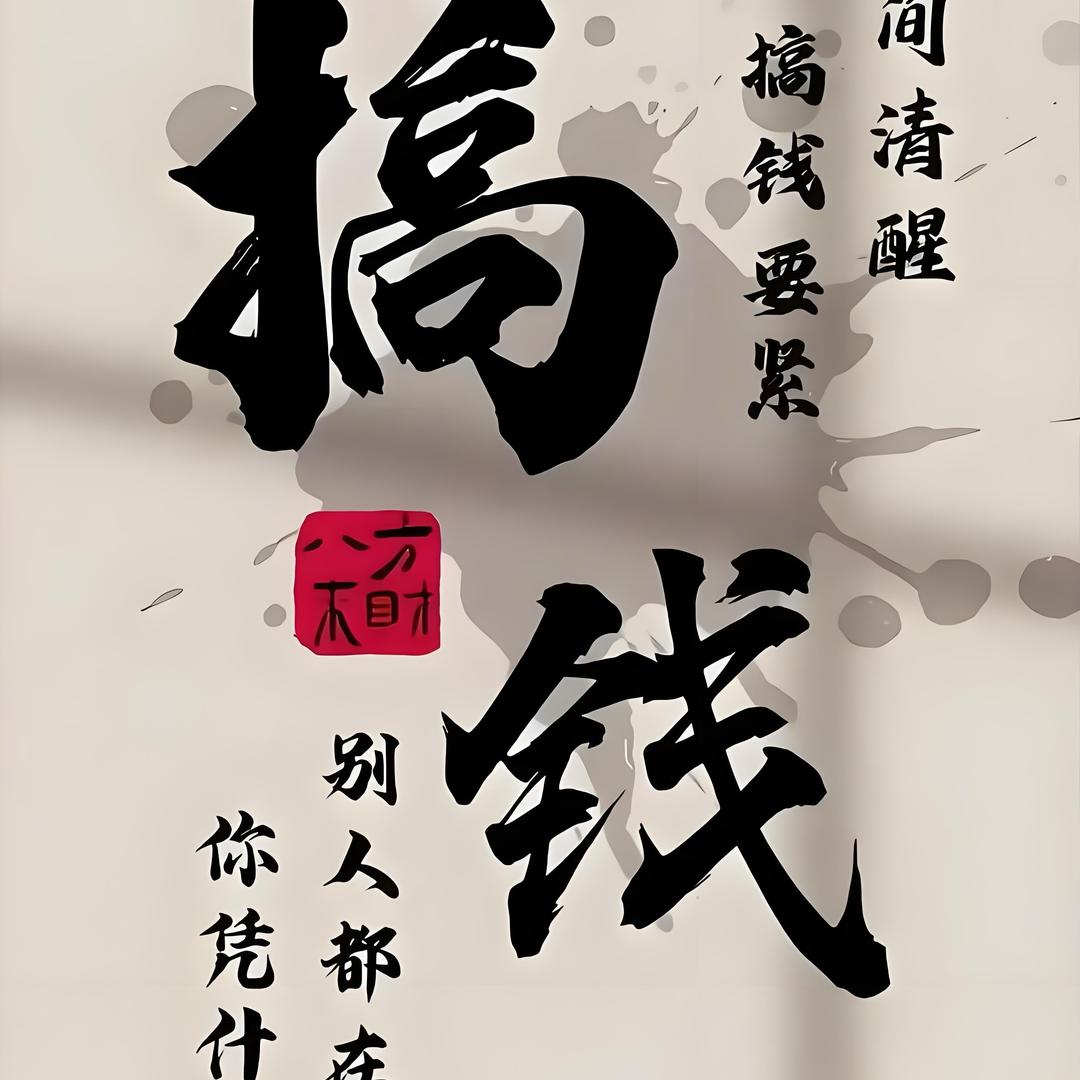 简清醒
搞钱要紧
搞钱
八方
来财
别人都在
你凭什